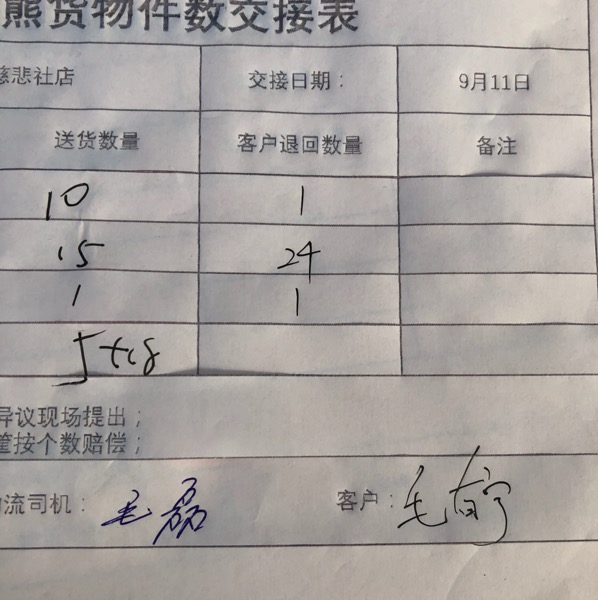 熊货物件数交接表
慈悲社店 交接日期： 9月11日
送货数量 客户退回数量 备注
10 1
15 24
1 1
5+18
异议现场提出；
筐按个数赔偿；
流司机： 毛磊 客户： 毛